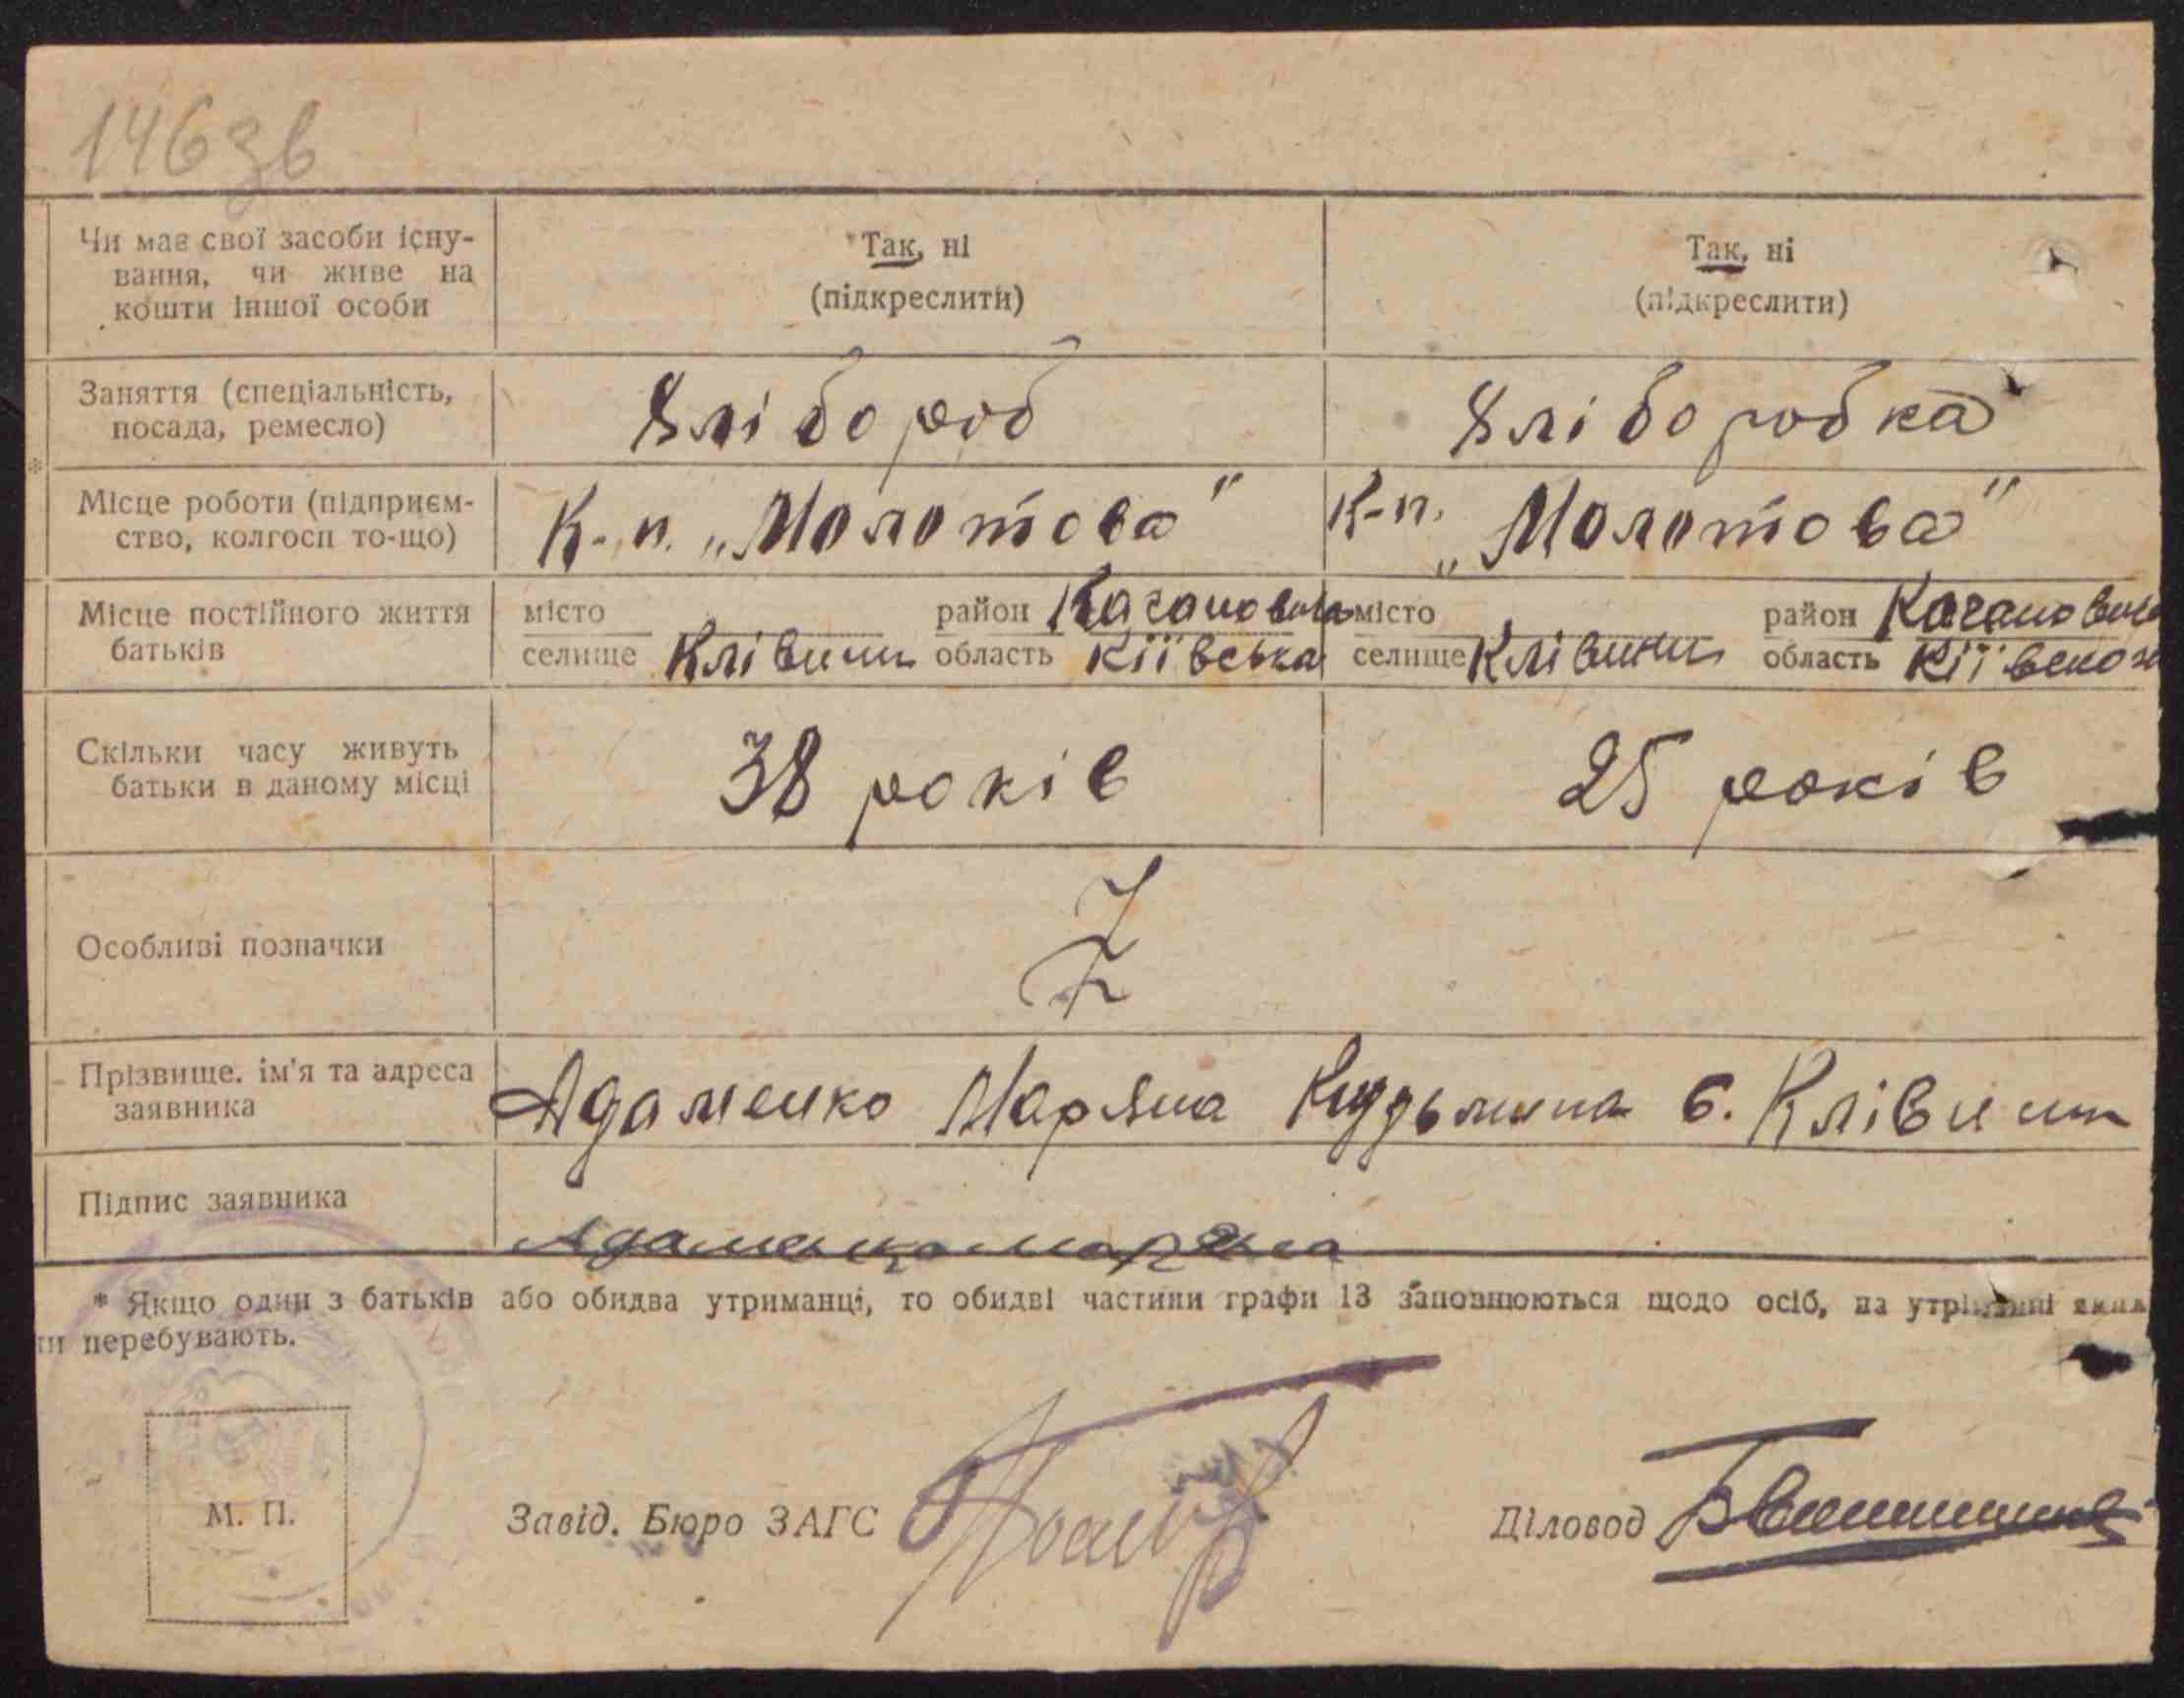 146зв
Чи має свої засоби існу-
вання, чи живе на
кошти іншої особи
Так, ні
(підкреслити)
Так, ні
(підкреслити)
Заняття (спеціальність,
посада, ремесло)
Хлібороб
Хліборобка
Місце роботи (підприєм-
ство, колгосп то-що)
К-п. „Молотова"
К-п. „Молотова"
Місце постійного життя
батьків
місто
селище Клівини
район
область Кіївська
місто
селище Клівини
район
область
Скільки часу живуть
батьки в даному місці
38 років
25 років
Особливі позначки
Z
Прізвище. ім'я та адреса
заявника
Адаменко Марʼяна с. Клівини
Підпис заявника
Адаменко
* Якщо один з батьків або обидва утриманці, то обидві частини графи 13 заповнюються щодо осіб, на
перебувають.
М. П.
Завід. Бюро ЗАГС
Діловод